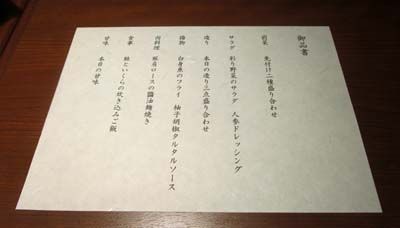 御品書
前菜 先付け二種盛り合わせ
サラダ 彩り野菜のサラダ 人参ドレッシング
造り 本日の造り三点盛り合わせ
揚物 白身魚のフライ 柚子胡椒タルタルソース
肉料理 豚肩ロースの醤油麹焼き
食事 鮭といくらの炊き込みご飯
甘味 本日の甘味